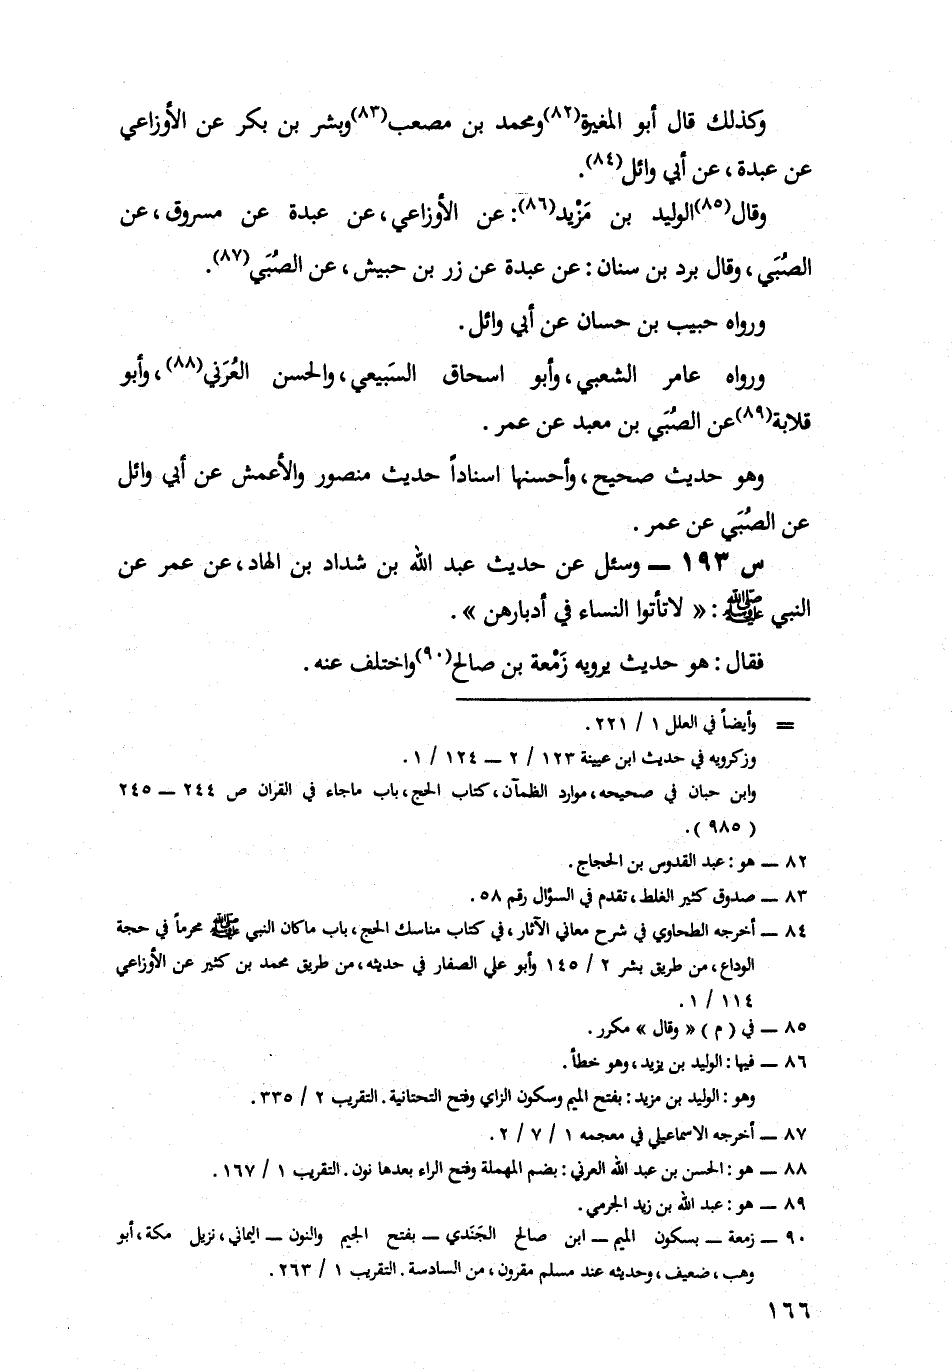 وكذلك قال أبو المغيرة(٨٢)ومحمد بن مصعب(٨٣)وبشر بن بكر عن الأوزاعي
عن عبدة ، عن أبي وائل(٨٤).
وقال(٨٥)الوليد بن مَزْيد(٨٦): عن الأوزاعي ، عن عبدة عن مسروق ، عن
الصُبَي ، وقال برد بن سنان : عن عبدة عن زر بن حبيش ، عن الصُبَي(٨٧).
ورواه حبيب بن حسان عن أبي وائل .
ورواه عامر الشعبي ، وأبو اسحاق السَبيعي ، والحسن العُرَني(٨٨)، وأبو
قلابة(٨٩)عن الصُبَي بن معبد عن عمر .
وهو حديث صحيح ، وأحسنها اسناداً حديث منصور والأعمش عن أبي وائل
عن الصُبَي عن عمر .
س ١٩٣ ــ وسئل عن حديث عبد الله بن شداد بن الهاد ، عن عمر عن
النبي ﷺ : « لاتأتوا النساء في أدبارهن » .
فقال : هو حديث يرويه زَمْعة بن صالح(٩٠)واختلف عنه .
= وأيضاً في العلل ١ / ٢٢١ .
وزكرويه في حديث ابن عيينة ١٢٣ / ٢ ــ ١٢٤ / ١ .
وابن حبان في صحيحه ، موارد الظمآن ، كتاب الحج ، باب ماجاء في القران ص ٢٤٤ ــ ٢٤٥
( ٩٨٥ ) .
٨٢ ــ هو : عبد القدوس بن الحجاج .
٨٣ ــ صدوق كثير الغلط ، تقدم في السؤال رقم ٥٨ .
٨٤ ــ أخرجه الطحاوي في شرح معاني الآثار ، في كتاب مناسك الحج ، باب ماكان النبي ﷺ محرماً في حجة
الوداع ، من طريق بشر ٢ / ١٤٥ وأبو علي الصفار في حديثه ، من طريق محمد بن كثير عن الأوزاعي
١١٤ / ١ .
٨٥ ــ في ( م ) « وقال » مكرر .
٨٦ ــ فيها : الوليد بن يزيد ، وهو خطأ .
وهو : الوليد بن مزيد : بفتح الميم وسكون الزاي وفتح التحتانية . التقريب ٢ / ٣٣٥ .
٨٧ ــ أخرجه الاسماعيلي في معجمه ١ / ٧ / ٢ .
٨٨ ــ هو : الحسن بن عبد الله العرني : بضم المهملة وفتح الراء بعدها نون . التقريب ١ / ١٦٧ .
٨٩ ــ هو : عبد الله بن زيد الجرمي .
٩٠ ــ زمعة ــ بسكون الميم ــ ابن صالح الجَنَدي ــ بفتح الجيم والنون ــ اليماني ، نزيل مكة ، أبو
وهب ، ضعيف ، وحديثه عند مسلم مقرون ، من السادسة . التقريب ١ / ٢٦٣ .
١٦٦